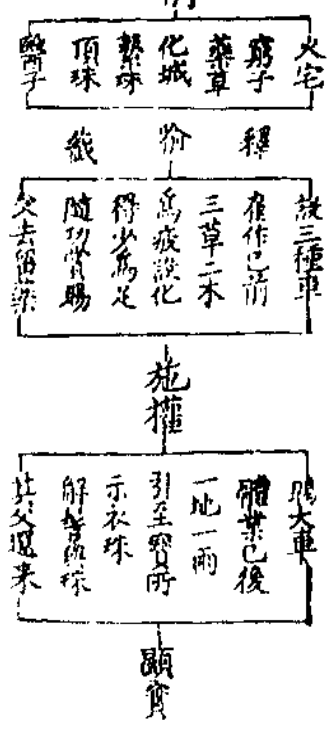 火宅
窮子
藥草
化城
繫珠
頂珠
醫子
釋
喻
籤
說三種車
雇作已前
三草二木
爲疲設化
得少爲足
隨功賞賜
父去留藥
施權
賜大車
體業已後
一地一雨
引至寶所
示衣珠
解髻珠
其父還來
顯實